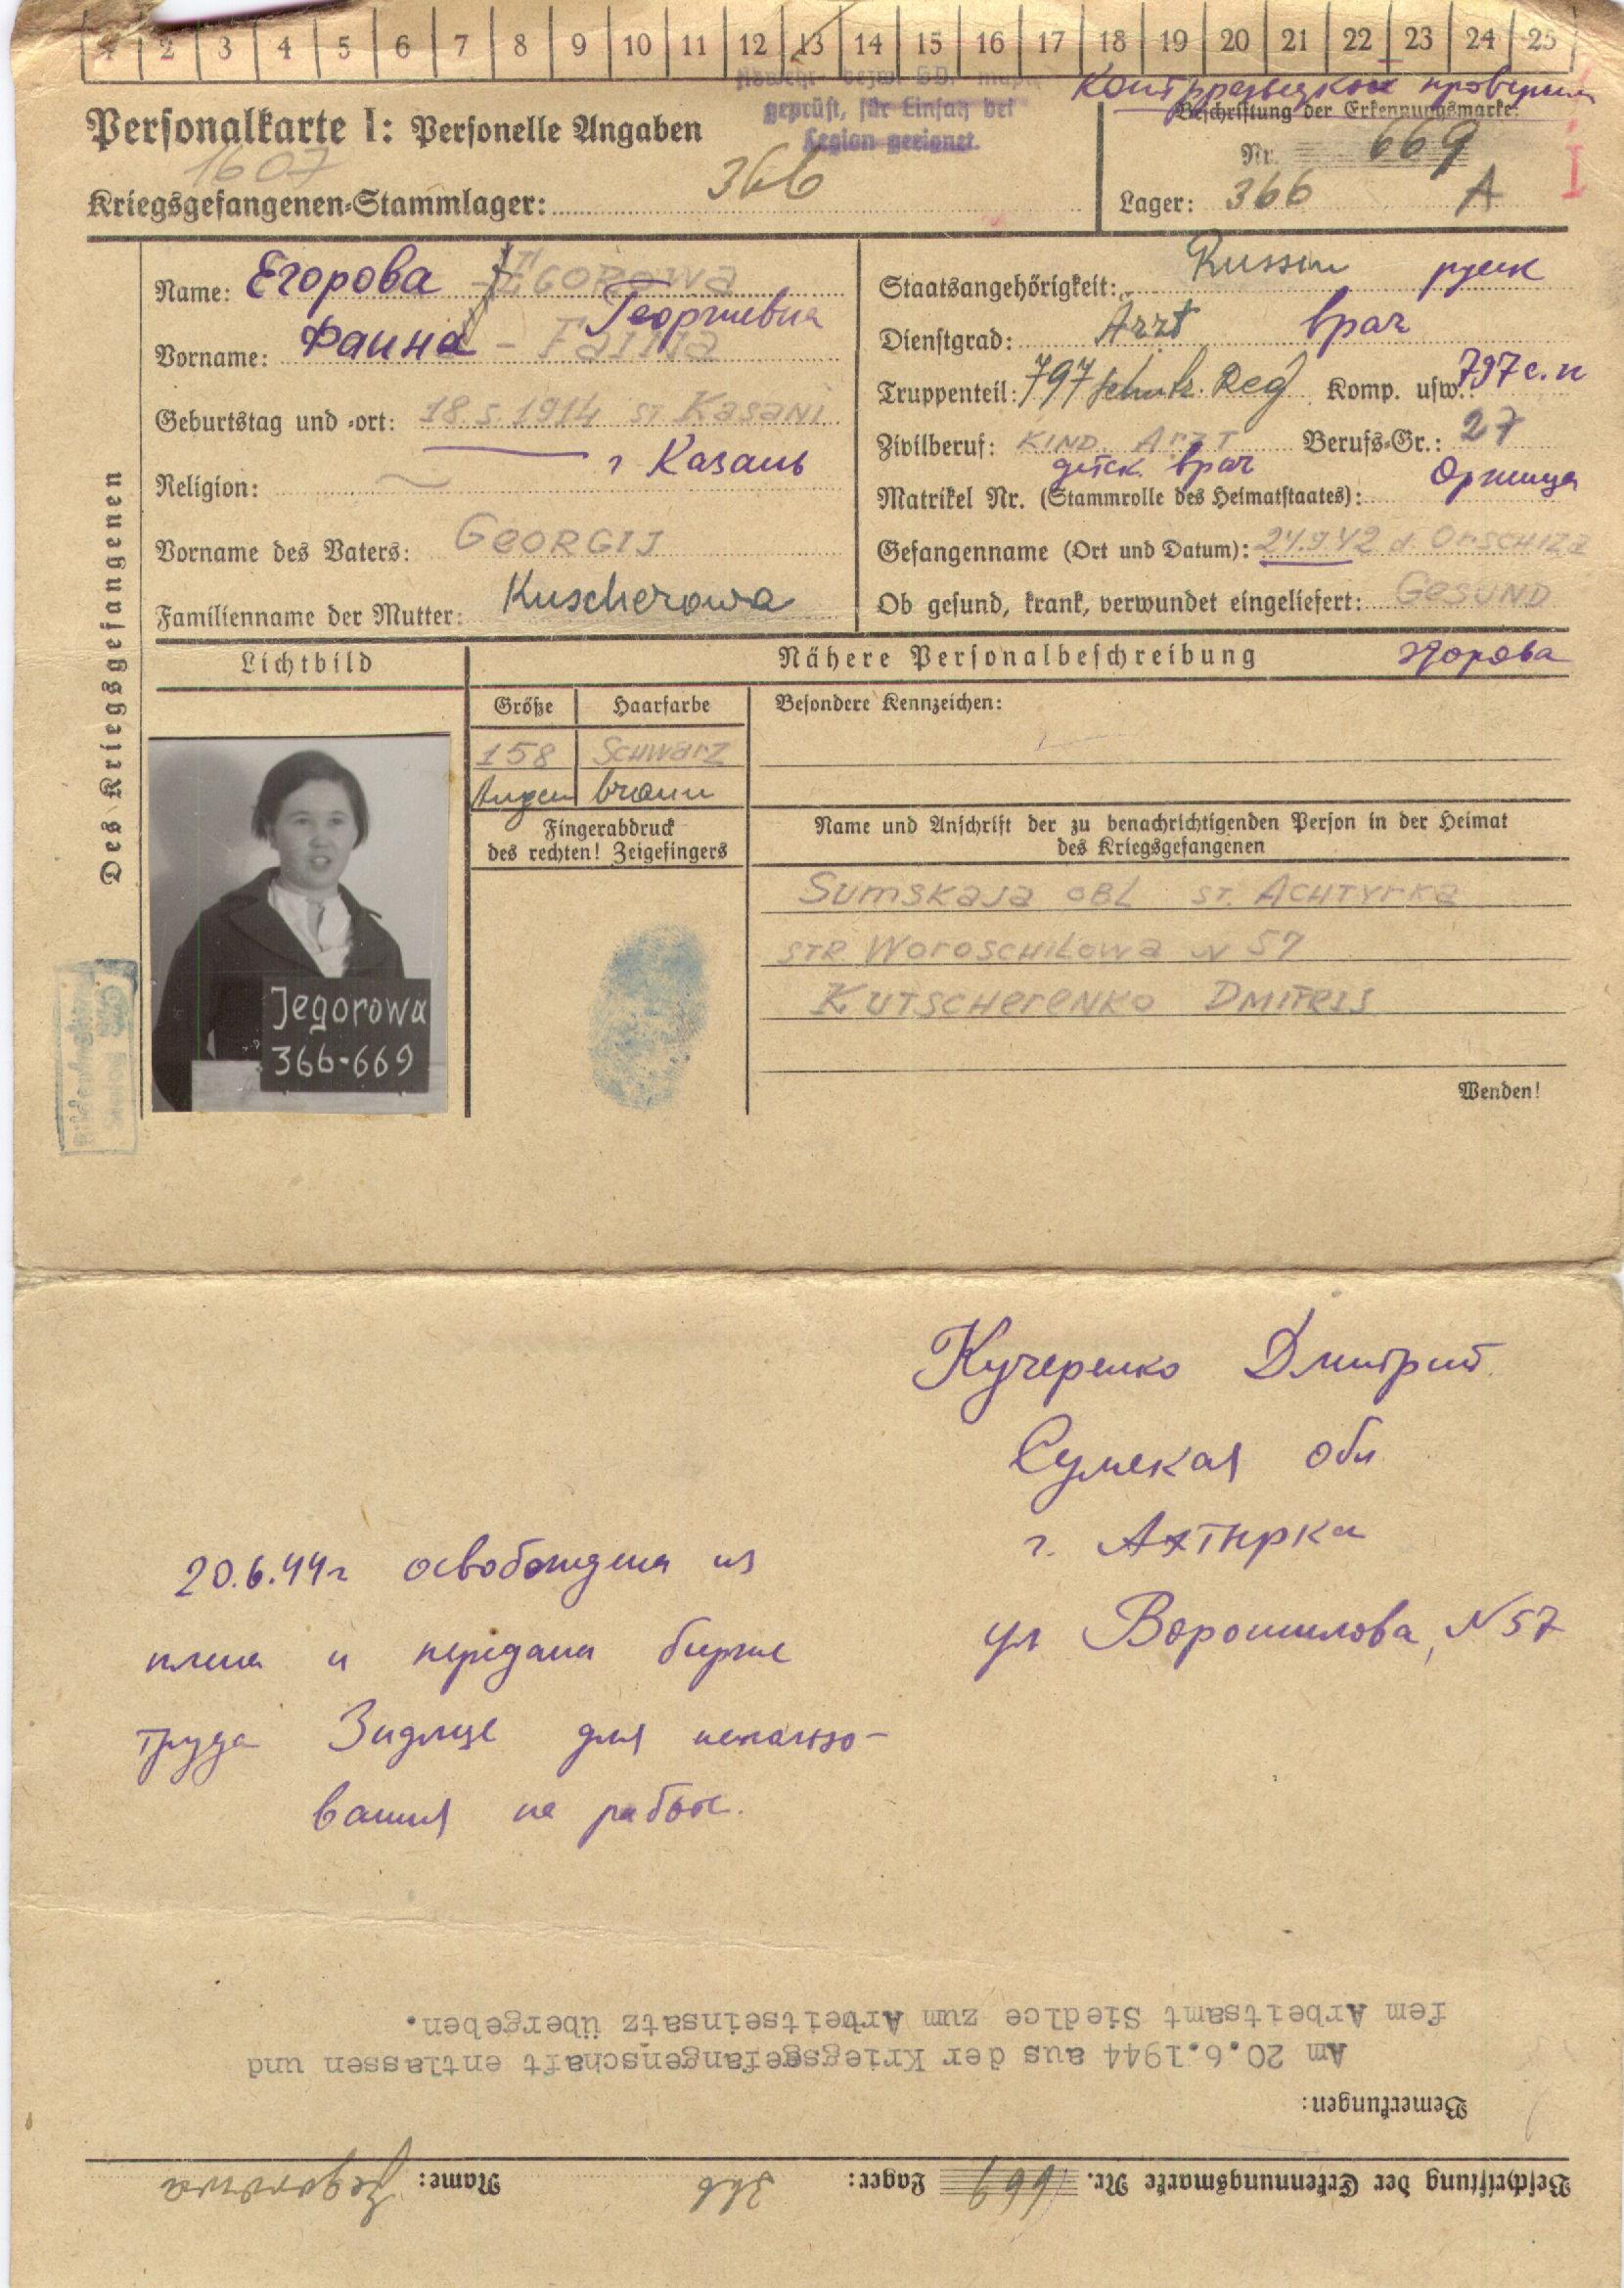 1 2 3 4 5 6 7 8 9 10 11 12 13 14 15 16 17 18 19 20 21 22 23 24 25
geprüft, für Einsatz bei
Legion geeignet.
Контрразведкой
Personalkarte I: Personelle Angaben
Beschriftung der Erkennungsmarke:
1607
Nr. 669
I
Kriegsgefangenen-Stammlager: 366
Lager: 366 A
Des Kriegsgefangenen
Name: Егорова JEGOROWA
Георгиевна
Vorname: Фаина - FAINA
Geburtstag und -ort: 18.5.1914 ST KASANI
г Казань
Religion:
Vorname des Vaters: GEORGIJ
Familienname der Mutter: Kuscherowa
Staatsangehörigkeit: Russin русск
Dienstgrad: Arzt врач
Truppenteil: 797 Schutz. Reg Komp. usw.: 797 с.п
Zivilberuf: KIND. ARZT Berufs-Gr.: 27
детск. врач
Matrikel Nr. (Stammrolle des Heimatstaates): Оржица
Gefangenname (Ort und Datum): 24.9.42 d. ORSCHIZA
Ob gesund, krank, verwundet eingeliefert: GESUND
здорова
Lichtbild
Nähere Personalbeschreibung
Größe Haarfarbe Besondere Kennzeichen:
158 SCHWARZ
Augen braun
Fingerabdruck
des rechten! Zeigefingers
Name und Anschrift der zu benachrichtigenden Person in der Heimat
des Kriegsgefangenen
SUMSKAJA OBL ST. ACHTYRKA
STR WOROSCHILOWA N 57
KUTSCHERENKO DMITRIJ
Jegorowa
366-669
Wenden!
Кучеренко Дмитрий
Сумская обл
г. Ахтырка
ул Ворошилова, N 57
20.6.44г освобождена из
плена и передана бирже
труда Зидлце для использо-
вания на работе.
Beschriftung der Erkennungsmarke Nr. 669 Lager: 366 Name: Jegorowa
Bemerkungen:
Am 20.6.1944 aus der Kriegsgefangenschaft entlassen und
fem Arbeitsamt Siedlce zum Arbeitseinsatz übergeben.